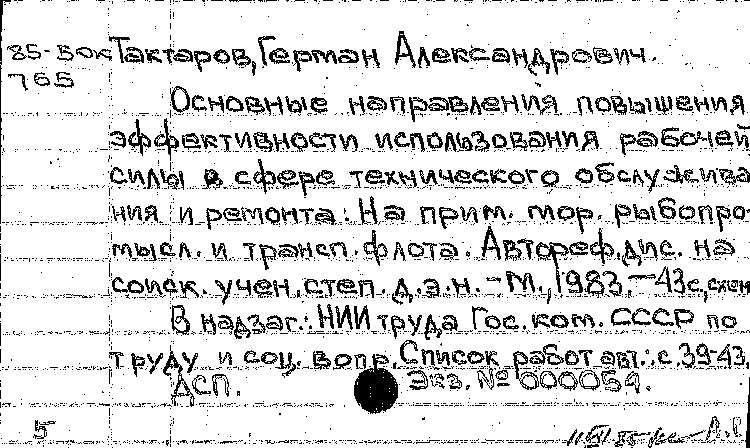 85-50к Тактаров, Герман Александрович.
765
Основные направления повышения
эффективности использования рабочей
силы в сфере технического обслужива
ния и ремонта: На прим. мор. рыбопро-
мысл. и трансп. флота. Автореф. дис. на
соиск. учен. степ. д.э.н. - М., 1983. - 43 с, схем
В надзаг.: НИИ труда Гос. ком. СССР по
труду и соц. вопр. Список работ авт.: с. 39-43.
ДСП. Экз. № 000054.
5